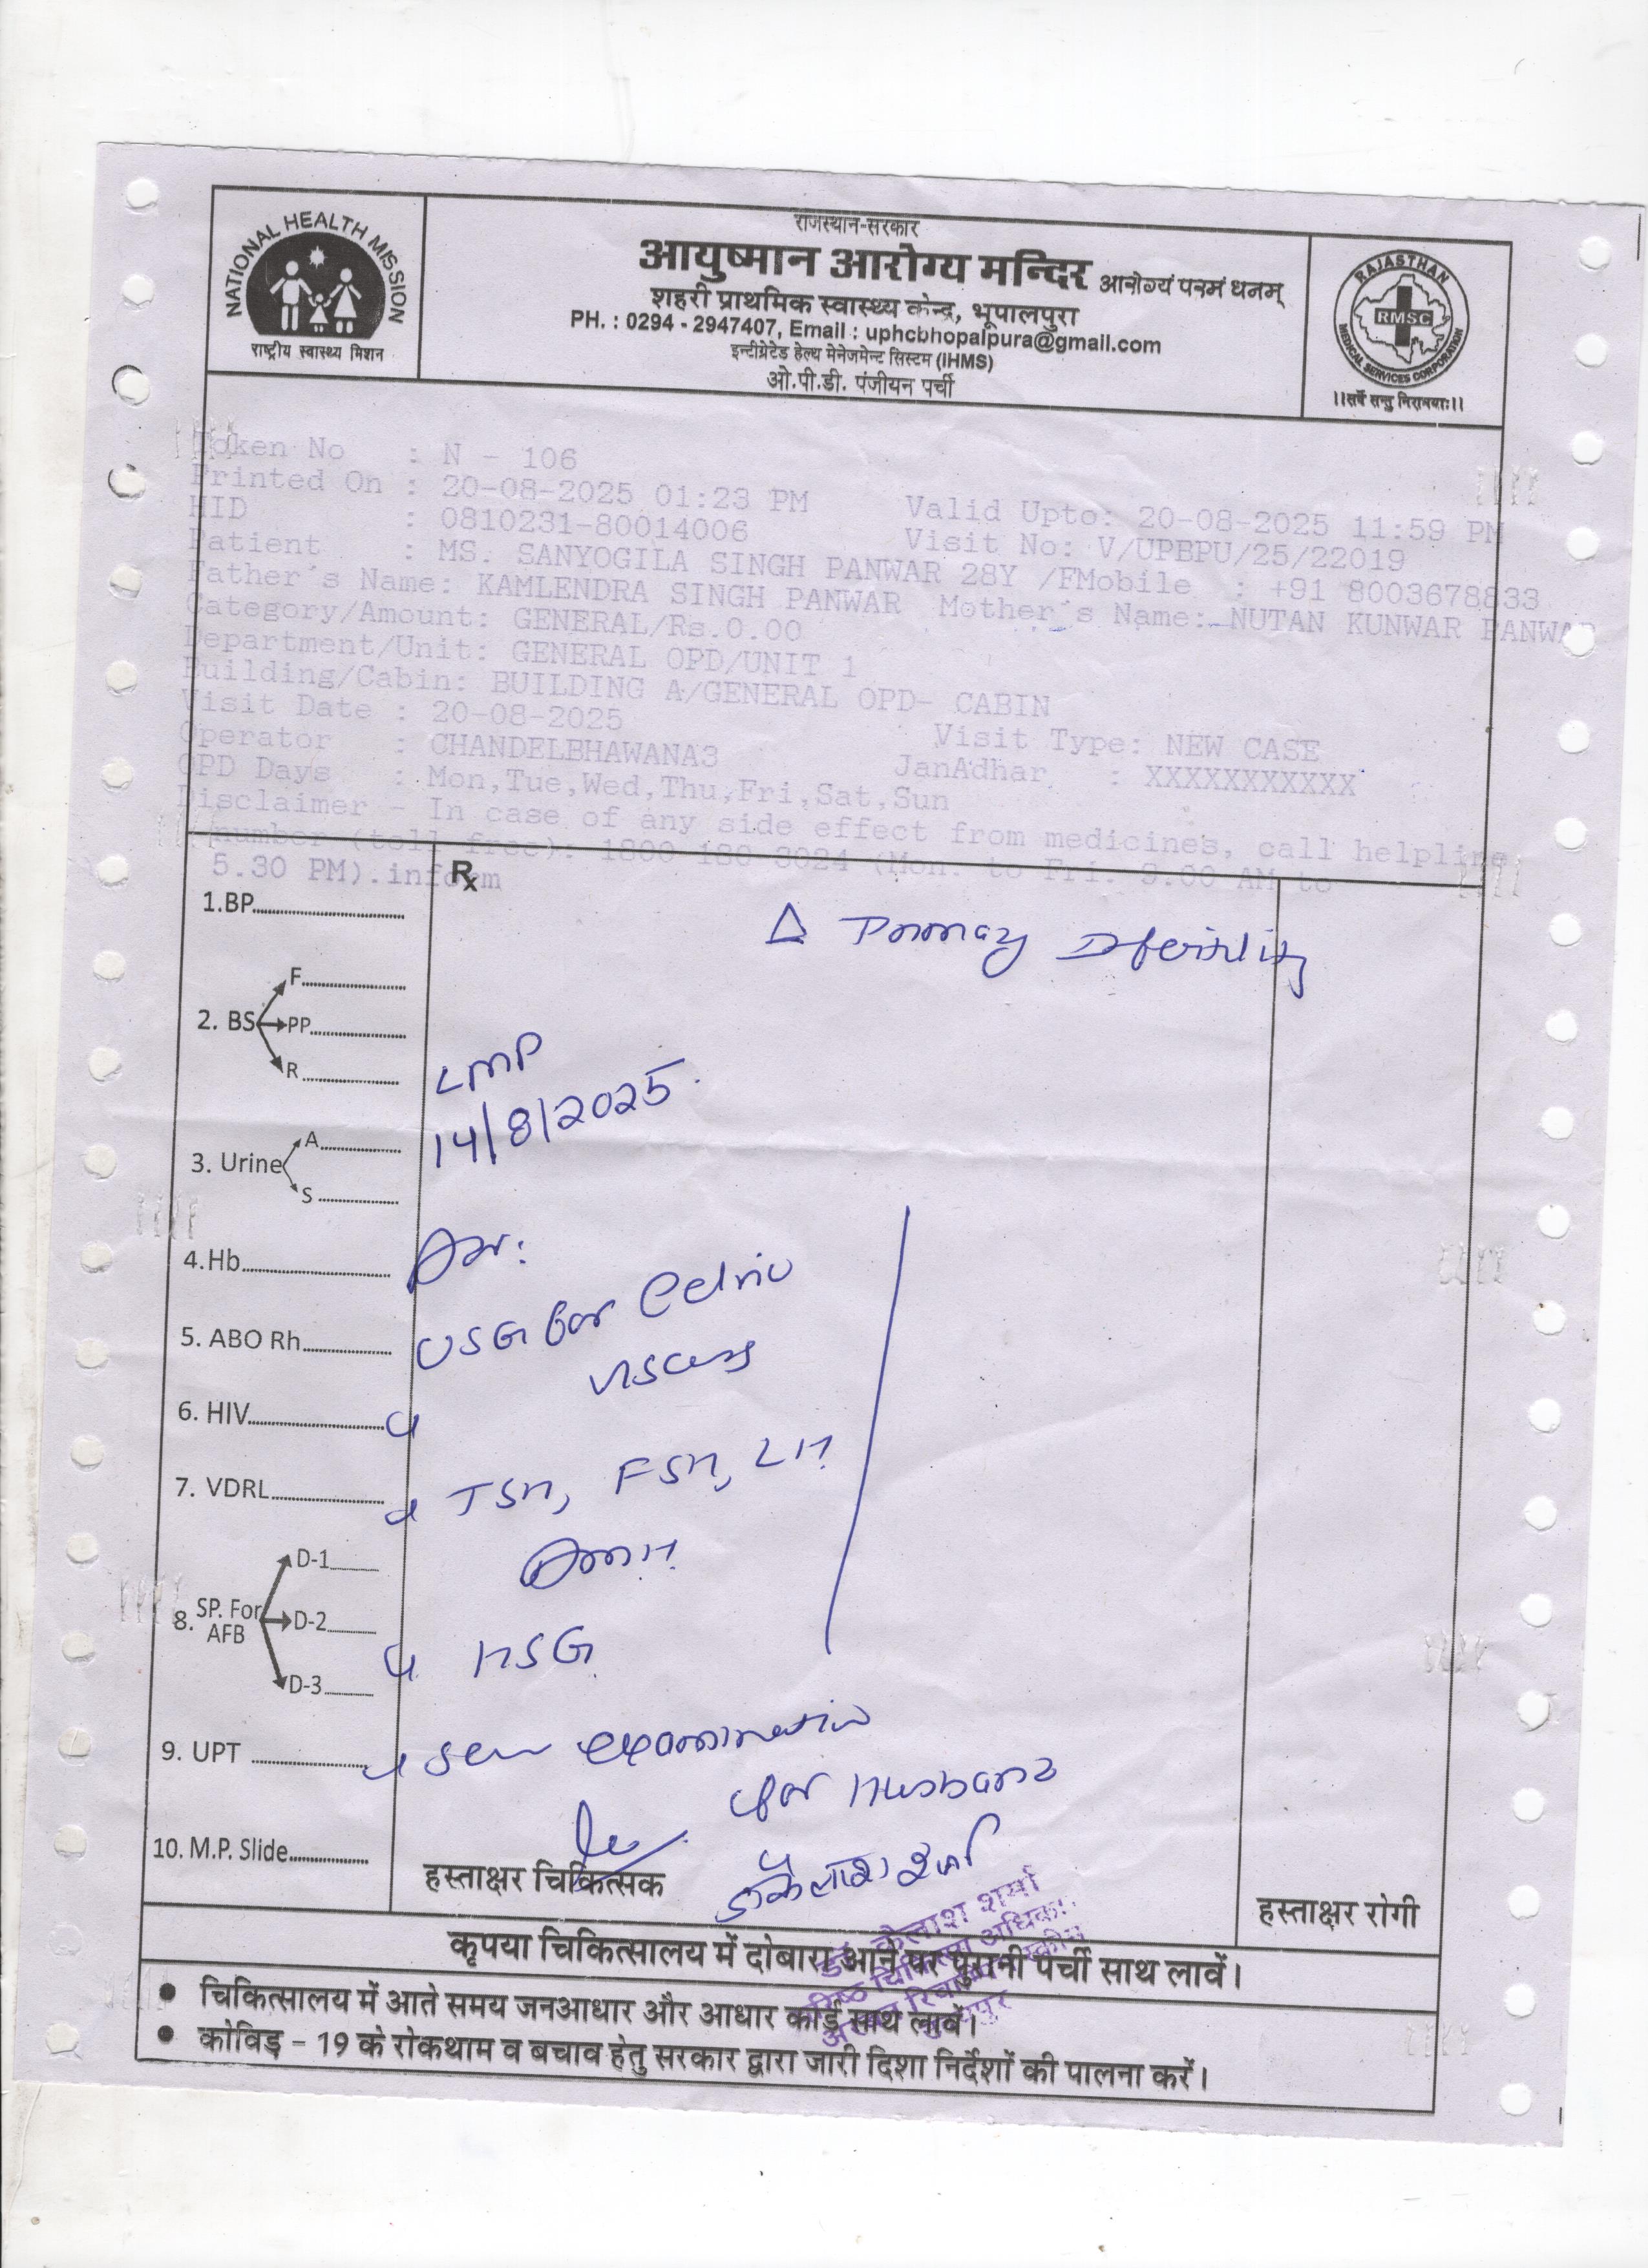 NATIONAL HEALTH MISSION
राष्ट्रीय स्वास्थ्य मिशन
राजस्थान-सरकार
आयुष्मान आरोग्य मन्दिर आरोग्यं परमं धनम्
शहरी प्राथमिक स्वास्थ्य केन्द्र, भूपालपुरा
PH. : 0294 - 2947407, Email : uphcbhopalpura@gmail.com
इन्टीग्रेटेड हेल्थ मेनेजमेन्ट सिस्टम (IHMS)
ओ.पी.डी. पंजीयन पर्ची
RAJASTHAN
RMSC
MEDICAL SERVICES CORPORATION
।।सर्वे सन्तु निरामयाः।।
Token No : N - 106
Printed On : 20-08-2025 01:23 PM Valid Upto: 20-08-2025 11:59 PM
HID : 0810231-80014006 Visit No: V/UPBPU/25/22019
Patient : MS. SANYOGILA SINGH PANWAR 28Y /FMobile : +91 8003678833
Father's Name: KAMLENDRA SINGH PANWAR Mother's Name: NUTAN KUNWAR PANWAR
Category/Amount: GENERAL/Rs.0.00
Department/Unit: GENERAL OPD/UNIT 1
Building/Cabin: BUILDING A/GENERAL OPD- CABIN
Visit Date : 20-08-2025 Visit Type: NEW CASE
Operator : CHANDELBHAWANA3 JanAdhar : XXXXXXXXXXX
OPD Days : Mon,Tue,Wed,Thu,Fri,Sat,Sun
Disclaimer - In case of any side effect from medicines, call helpline
number (toll free): 1800 180 3024 (Mon. to Fri. 9.00 AM to
5.30 PM).inform
Rx
Δ Primary Infertility
1.BP
2. BS F
PP
R
LMP
14/8/2025.
3. Urine A
S
4.Hb
Adv:
5. ABO Rh
USG for Pelvic
viscera
6. HIV
7. VDRL
TSH, FSH, LH
AMH
8. SP. For AFB D-1
D-2
D-3
HSG
9. UPT
Semen examination
for Husband
10. M.P. Slide
हस्ताक्षर चिकित्सक
डॉ कैलाश शर्मा
डॉ. कैलाश शर्मा
वरिष्ठ चिकित्सा अधिकारी
हस्ताक्षर रोगी
कृपया चिकित्सालय में दोबारा आने पर पुरानी पर्ची साथ लावें।
● चिकित्सालय में आते समय जनआधार और आधार कार्ड साथ लावें।
● कोविड़ - 19 के रोकथाम व बचाव हेतु सरकार द्वारा जारी दिशा निर्देशों की पालना करें।